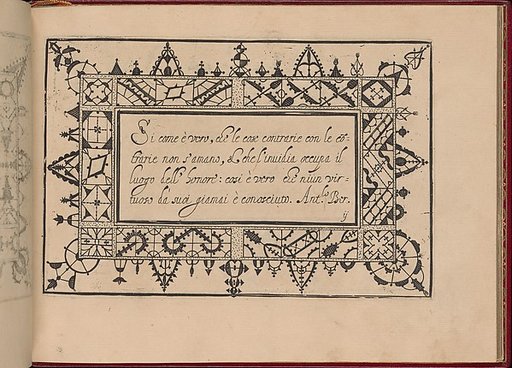 Si come è vero, che le cose contrarie con le cõ-
trarie non s'amano, &, che l'inuidia occupa il
luogo dell' honore: così è vero che niun vir-
tuoso da suoi giamai è conosciuto. Ant.º Ber.
ij